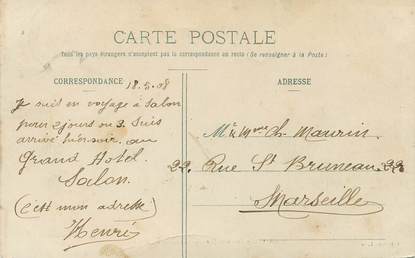 CARTE POSTALE
Tous les pays étrangers n'acceptent pas la correspondance au recto (Se renseigner à la Poste)
CORRESPONDANCE
18.5.08
Je suis en voyage à Salon
pour 2 jours ou 3. Suis
arrivé hier soir au
Grand Hotel
Salon.
(c'est mon adresse)
Henri
ADRESSE
Mr & Mme Ch. Maurin
22. Rue St Bruneau. 22
Marseille